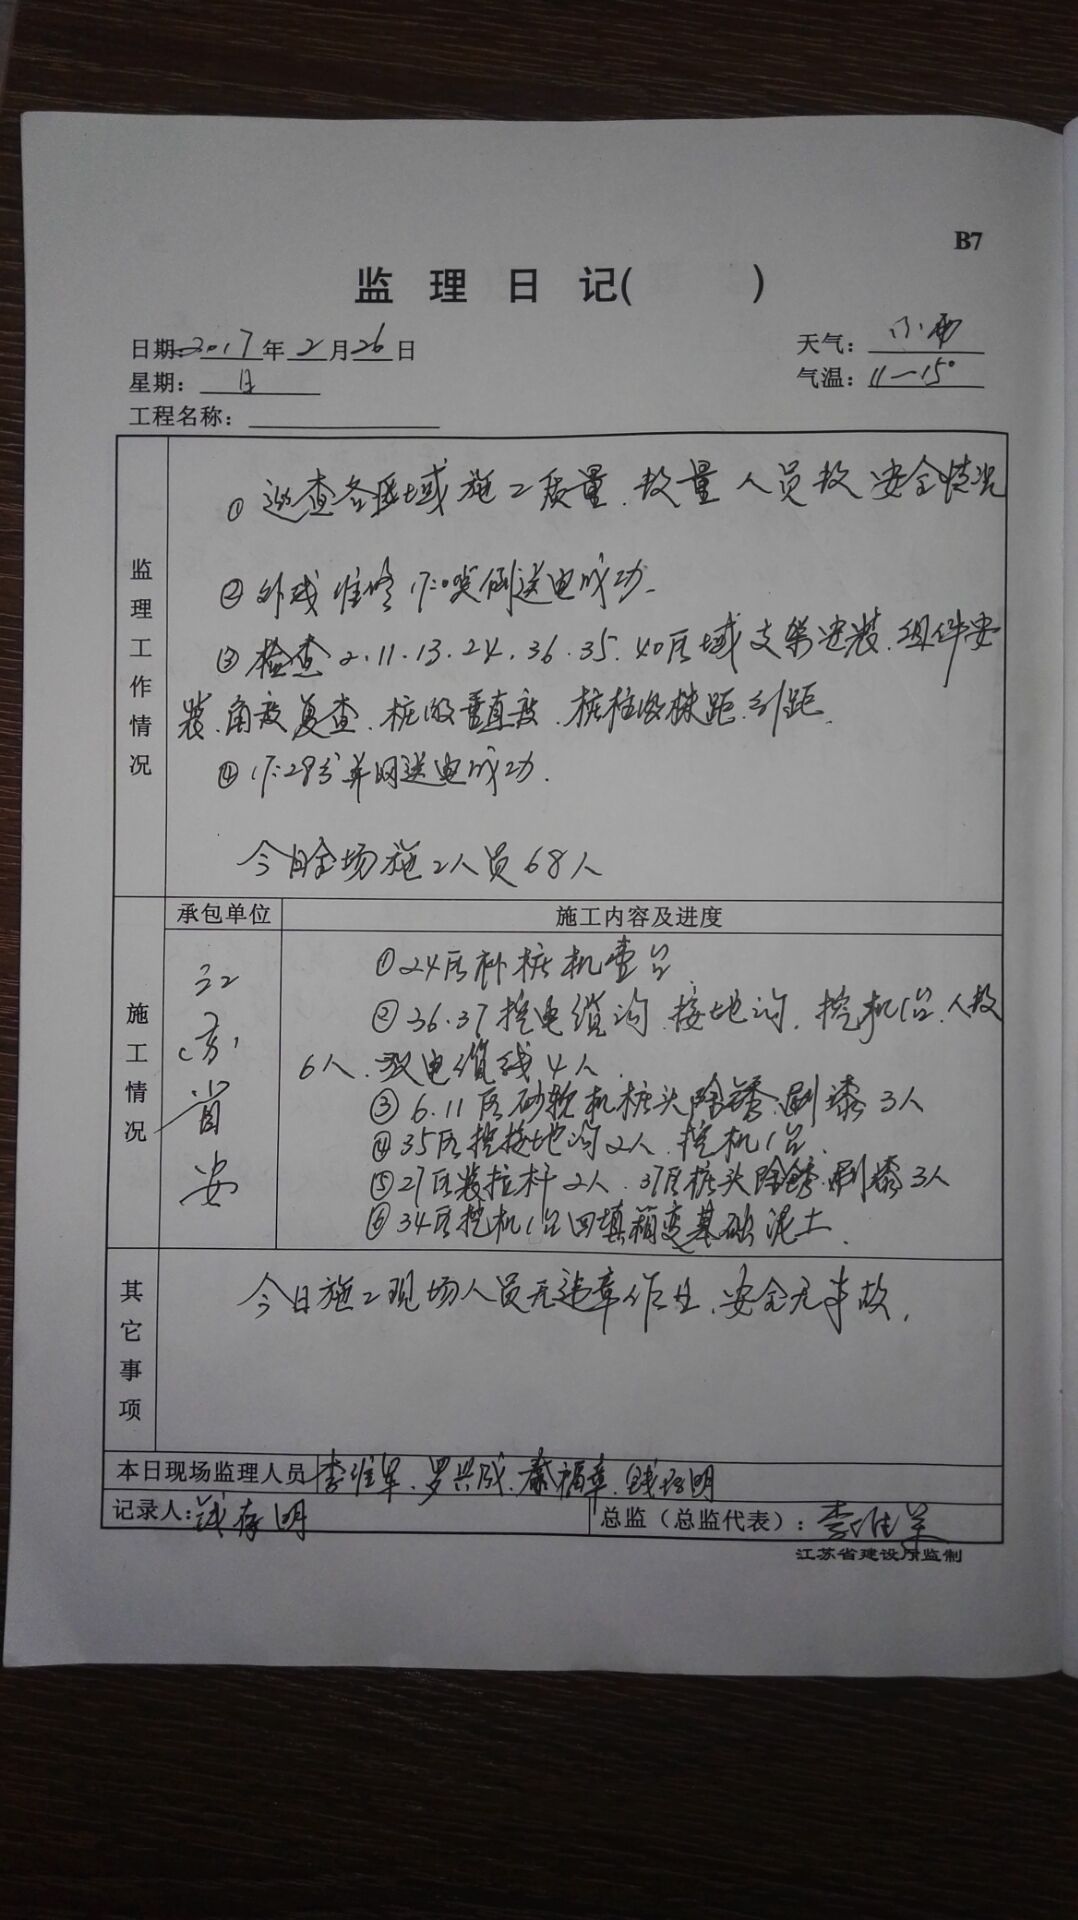 B7
监 理 日 记(　　　)
日期:2017年2月26日
天气:小雨
星期:日
气温:11—15°
工程名称:
监理工作情况
①巡查各区域施工质量、数量人员数安全情况
送电成功.
③检查2.11.13.24.36.35.40区域支架安装.组件安
装.角度复查.桩的垂直度.桩柱的 距.
④17:29分并网送电成功.
今日全场施工人员68人
承包单位 施工内容及进度
施工情况
江苏省安
①24区补桩机壹台
②36.37挖电缆沟.接地沟.挖机1台.人数
6人.放电缆线4人.
③6.11区砂轮机桩头除锈.刷漆3人
④35区挖接地沟2人.挖机1台.
⑤27区装拉杆2人.37区桩头除锈.刷漆3人
⑥34区挖机1台回填箱变基础泥土.
其它事项
今日施工现场人员无违章作业.安全无事故.
本日现场监理人员 李维军.罗兴成. 福章.
记录人:钱存明
总监（总监代表）:李维军
江苏省建设厅监制